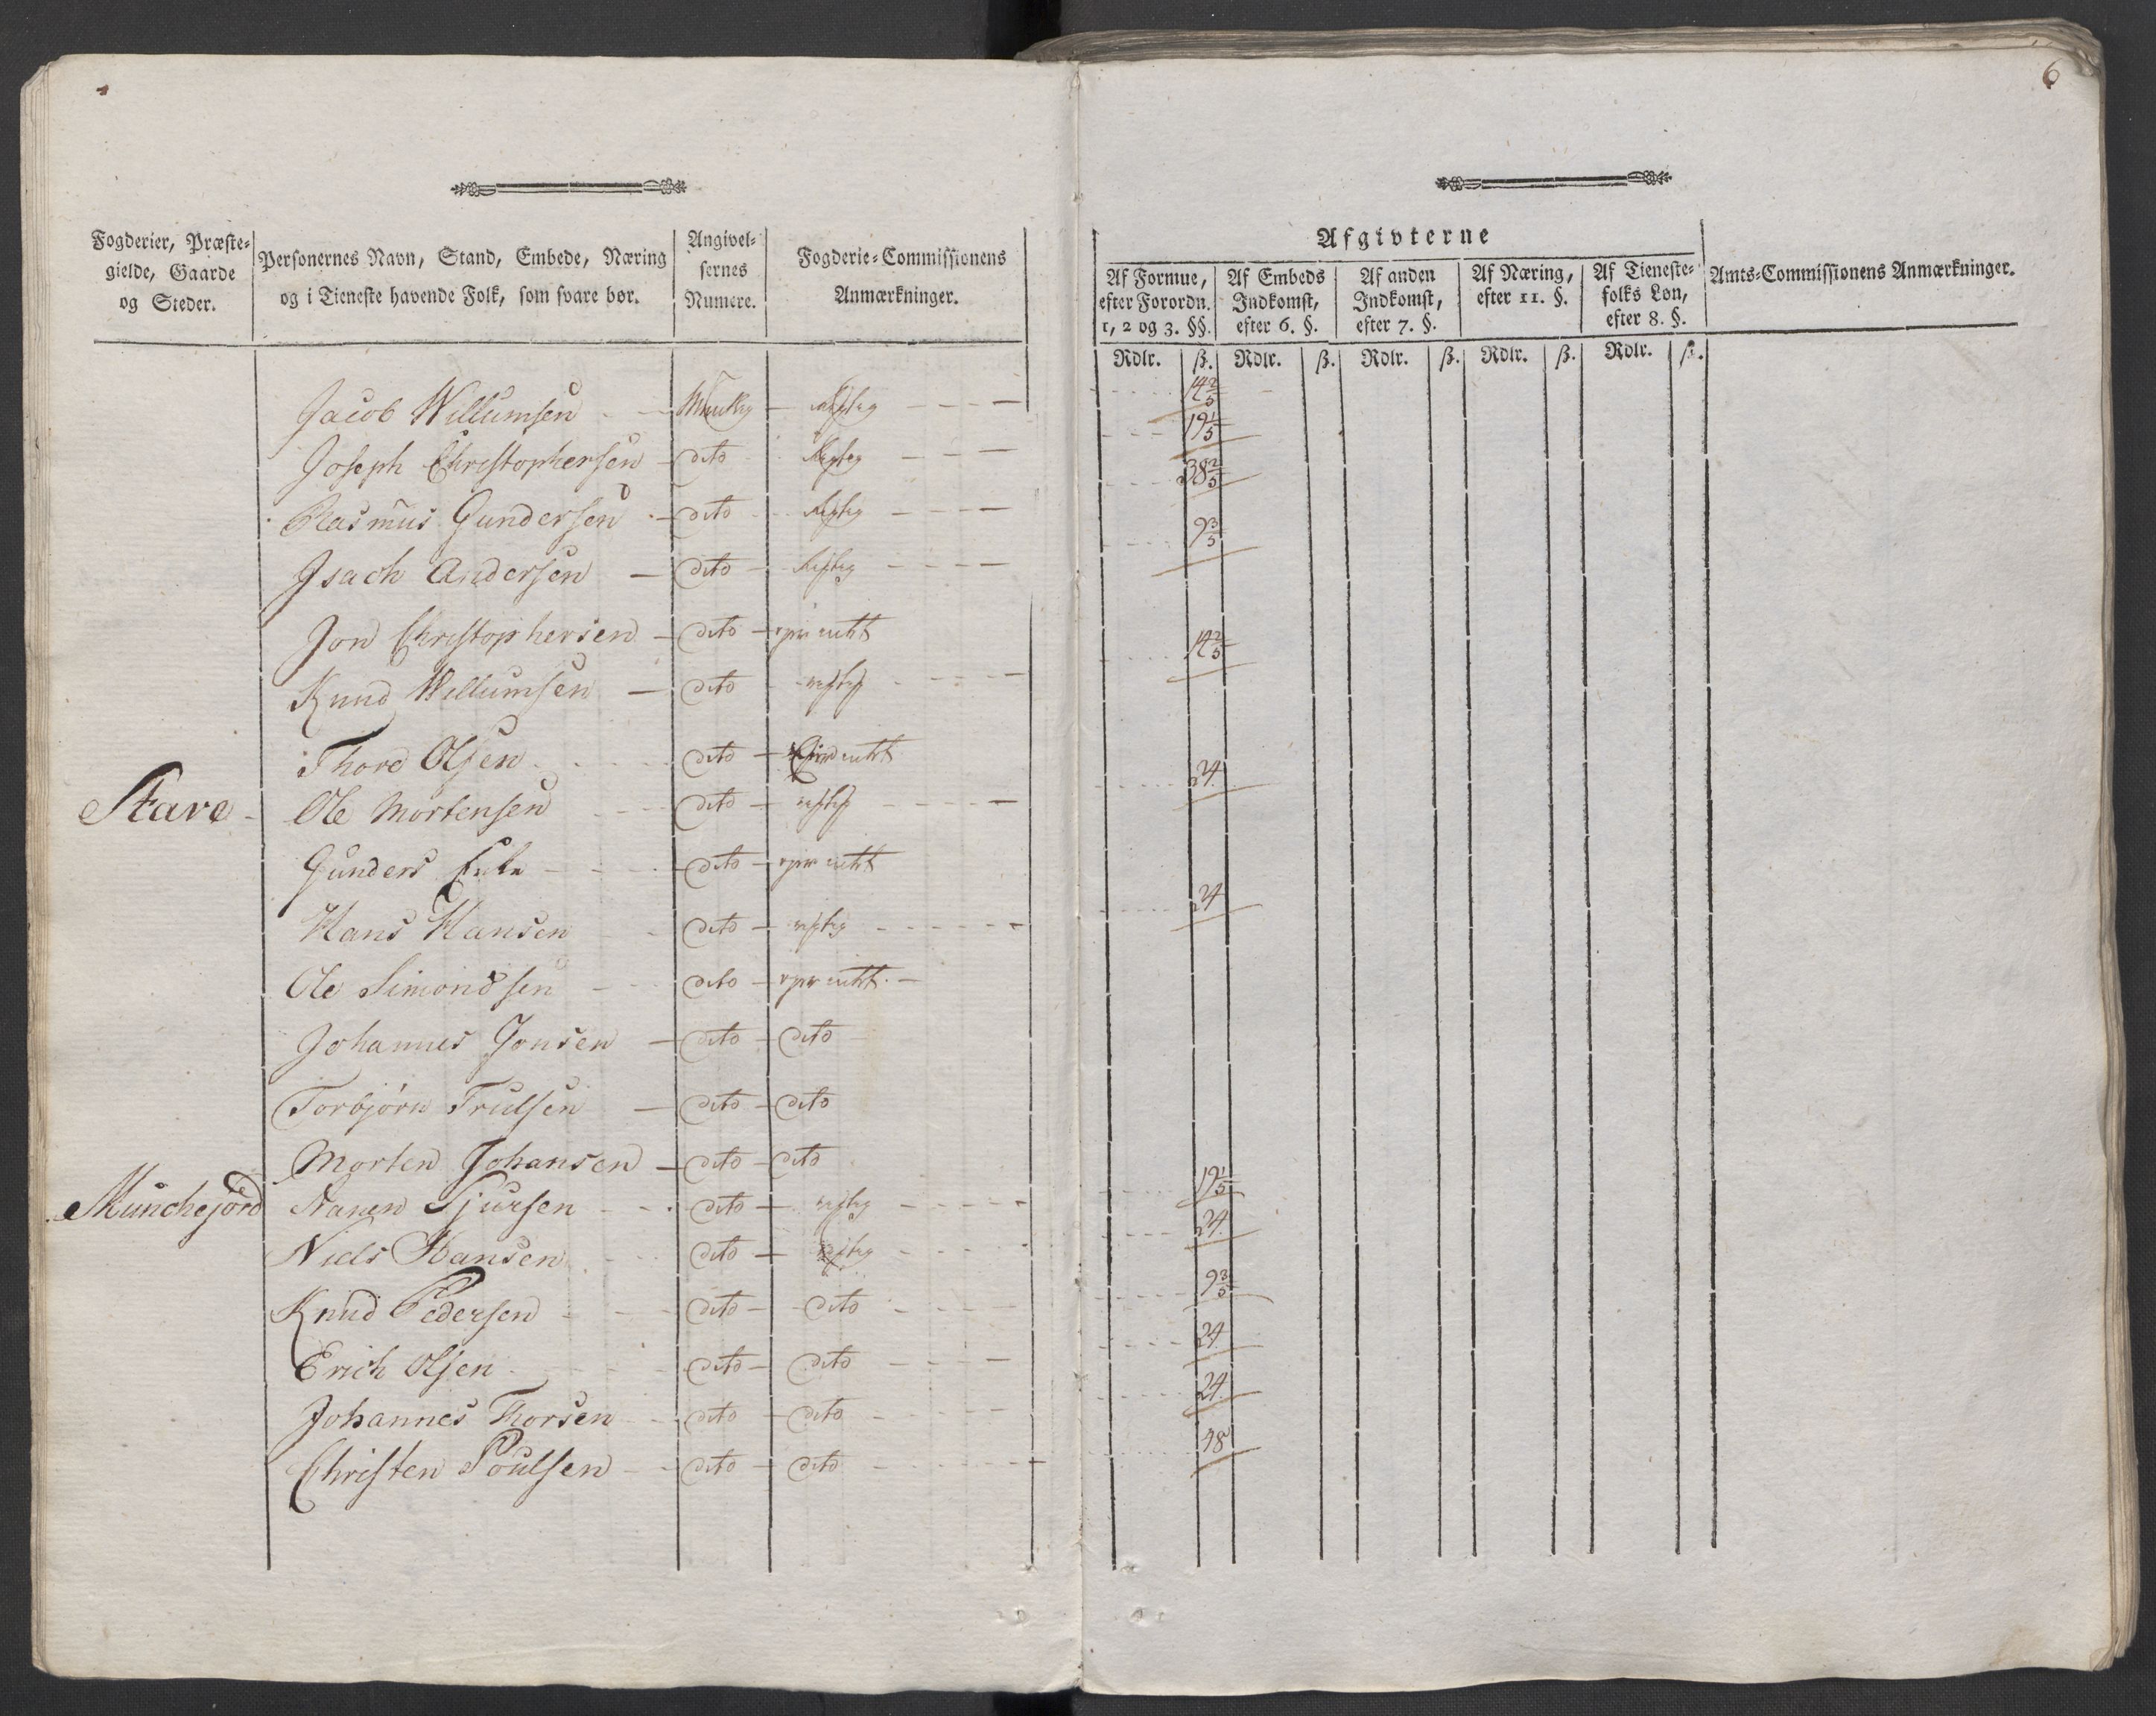 6
Fogderier, Præste-
gielde, Gaarde
og Steder.
Personernes Navn, Stand, Embede, Næring
og i Tieneste havende Folk, som svare bør.
Angivel-
sernes
Numere.
Fogderie-Commissionens
Anmærkninger.
Afgivterne
Af Formue,
efter Forordn.
1, 2 og 3. §§.
Af Embeds
Indkomst,
efter 6. §.
Af anden
Indkomst,
efter 7. §.
Af Næring,
efter 11. §.
Af Tieneste-
folks Løn,
efter 8. §.
Amts-Commissionens Anmærkninger.
Rdlr. ß. Rdlr. ß. Rdlr. ß. Rdlr. ß. Rdlr. ß.
Jacob Willumsen 14 2/5
Joseph Christophersen dito 19 1/5
Rasmus Gundersen dito 38 2/5
Isach Andersen dito 9 3/5
Jon Christophersen dito
Knud Willumsen dito 14 2/5
Thore Olsen dito
Stave Ole Mortensen dito 24
Gunders Enke dito
Hans Hansen dito 24
Ole Simonsen dito
Johannes Jonsen dito dito
Torbjørn Trulsen dito dito
Morten Johansen dito dito
Munchejord Nanen Sjursen dito 19 1/5
Niels Hansen dito 24
Knud Pedersen dito dito 9 3/5
Erich Olsen dito dito 24
Johannes Thorsen dito dito 24
Christen Poulsen dito dito 48